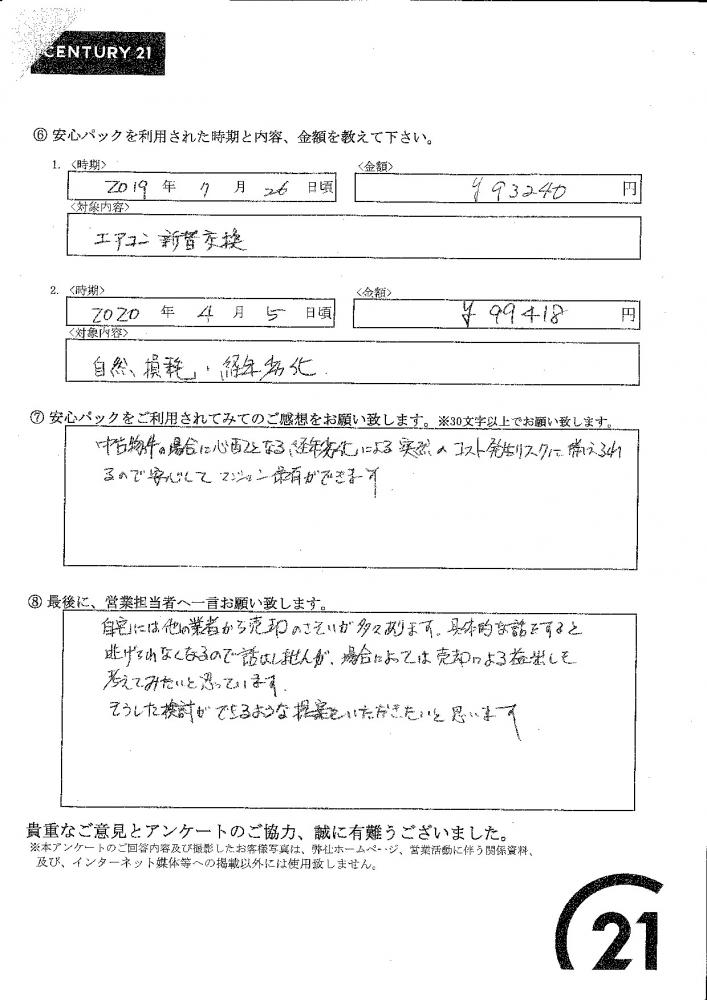 CENTURY 21
⑥ 安心パックを利用された時期と内容、金額を教えて下さい。
1. 〈時期〉 〈金額〉
2019 年 7 月 26 日頃 ¥93240 円
〈対象内容〉
エアコン 新替交換
2. 〈時期〉 〈金額〉
2020 年 4 月 5 日頃 ¥99418 円
〈対象内容〉
自然、損耗、経年劣化
⑦ 安心パックをご利用されてみてのご感想をお願い致します。※30文字以上でお願い致します。
中古物件の場合に心配となる「経年劣化」による突然のコスト発生リスクに備えられ
るので安心してマンション保有ができます
⑧ 最後に、営業担当者へ一言お願い致します。
自宅には他の業者から売却のさそいが多々あります。具体的な話をすると
逃げられなくなるので話はしませんが、場合によっては売却による益出しも
考えてみたいと思っています。
そうした検討ができるような提案をいただきたいと思います
貴重なご意見とアンケートのご協力、誠に有難うございました。
※本アンケートのご回答内容及び撮影したお客様写真は、弊社ホームページ、営業活動に伴う関係資料、
及び、インターネット媒体等への掲載以外には使用致しません。
21